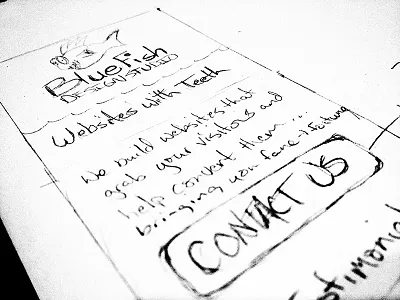 BlueFish
DESIGN STUDIO
Websites with Teeth
We build websites that
grab your visitors and
help convert them...
bringing you fame & fortune
CONTACT US